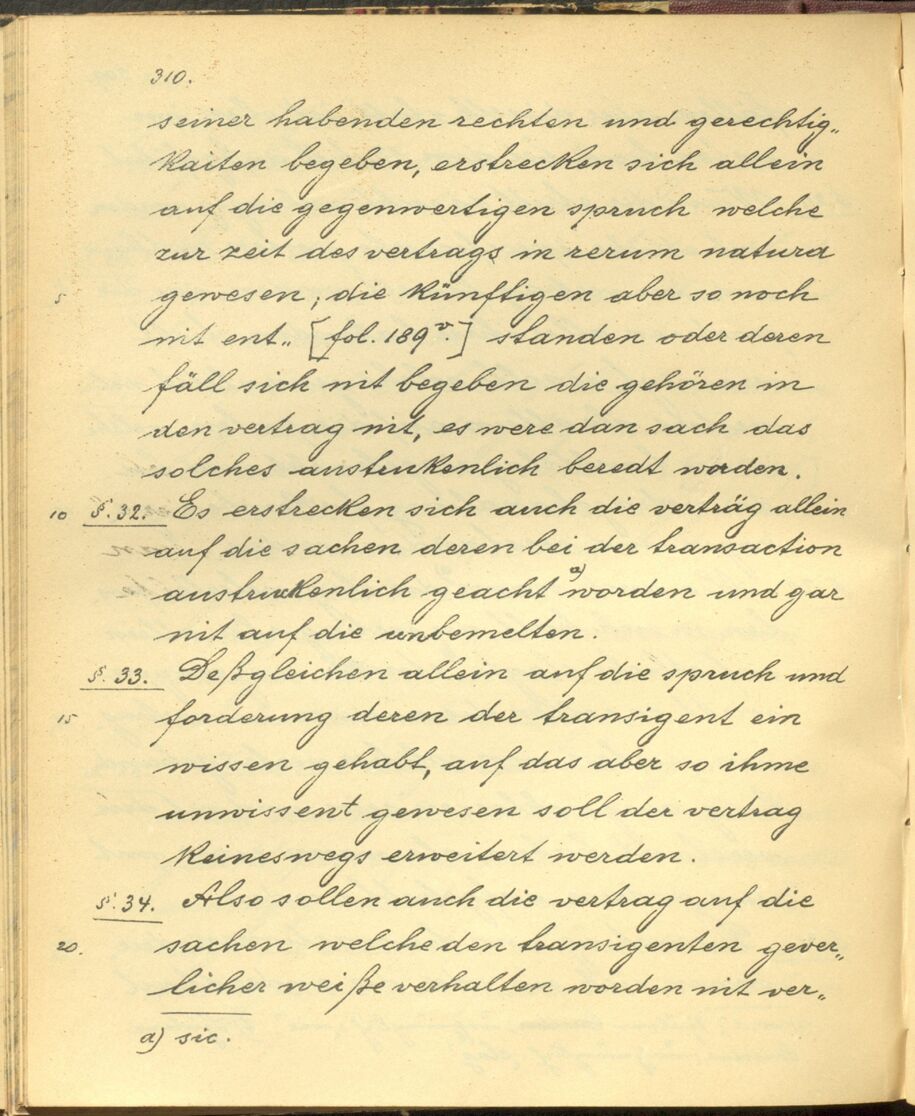 310.
seiner habenden rechten und gerechtig„
kaiten begeben, erstrecken sich allein
auf die gegenwertigen spruch welche
zur zeit des vertrags in rerum natura
5 gewesen, die künftigen aber so noch
nit ent„ [fol. 189v.] standen oder deren
fäll sich nit begeben die gehören in
den vertrag nit, es were dan sach das
solches austrukenlich beredt worden.
10 §. 32. Es erstrecken sich auch die verträg allein
auf die sachen deren bei der transaction
austrukenlich geacht a) worden und gar
nit auf die unbemelten.
§. 33. Deßgleichen allein auf die spruch und
15 forderung deren der transigent ein
wissen gehabt, auf das aber so ihme
unwissent gewesen soll der vertrag
keineswegs erweitert werden.
§. 34. Also sollen auch die vertrag auf die
20. sachen welche den transigenten gever„
licher weiße verhalten worden nit ver„
a) sic.